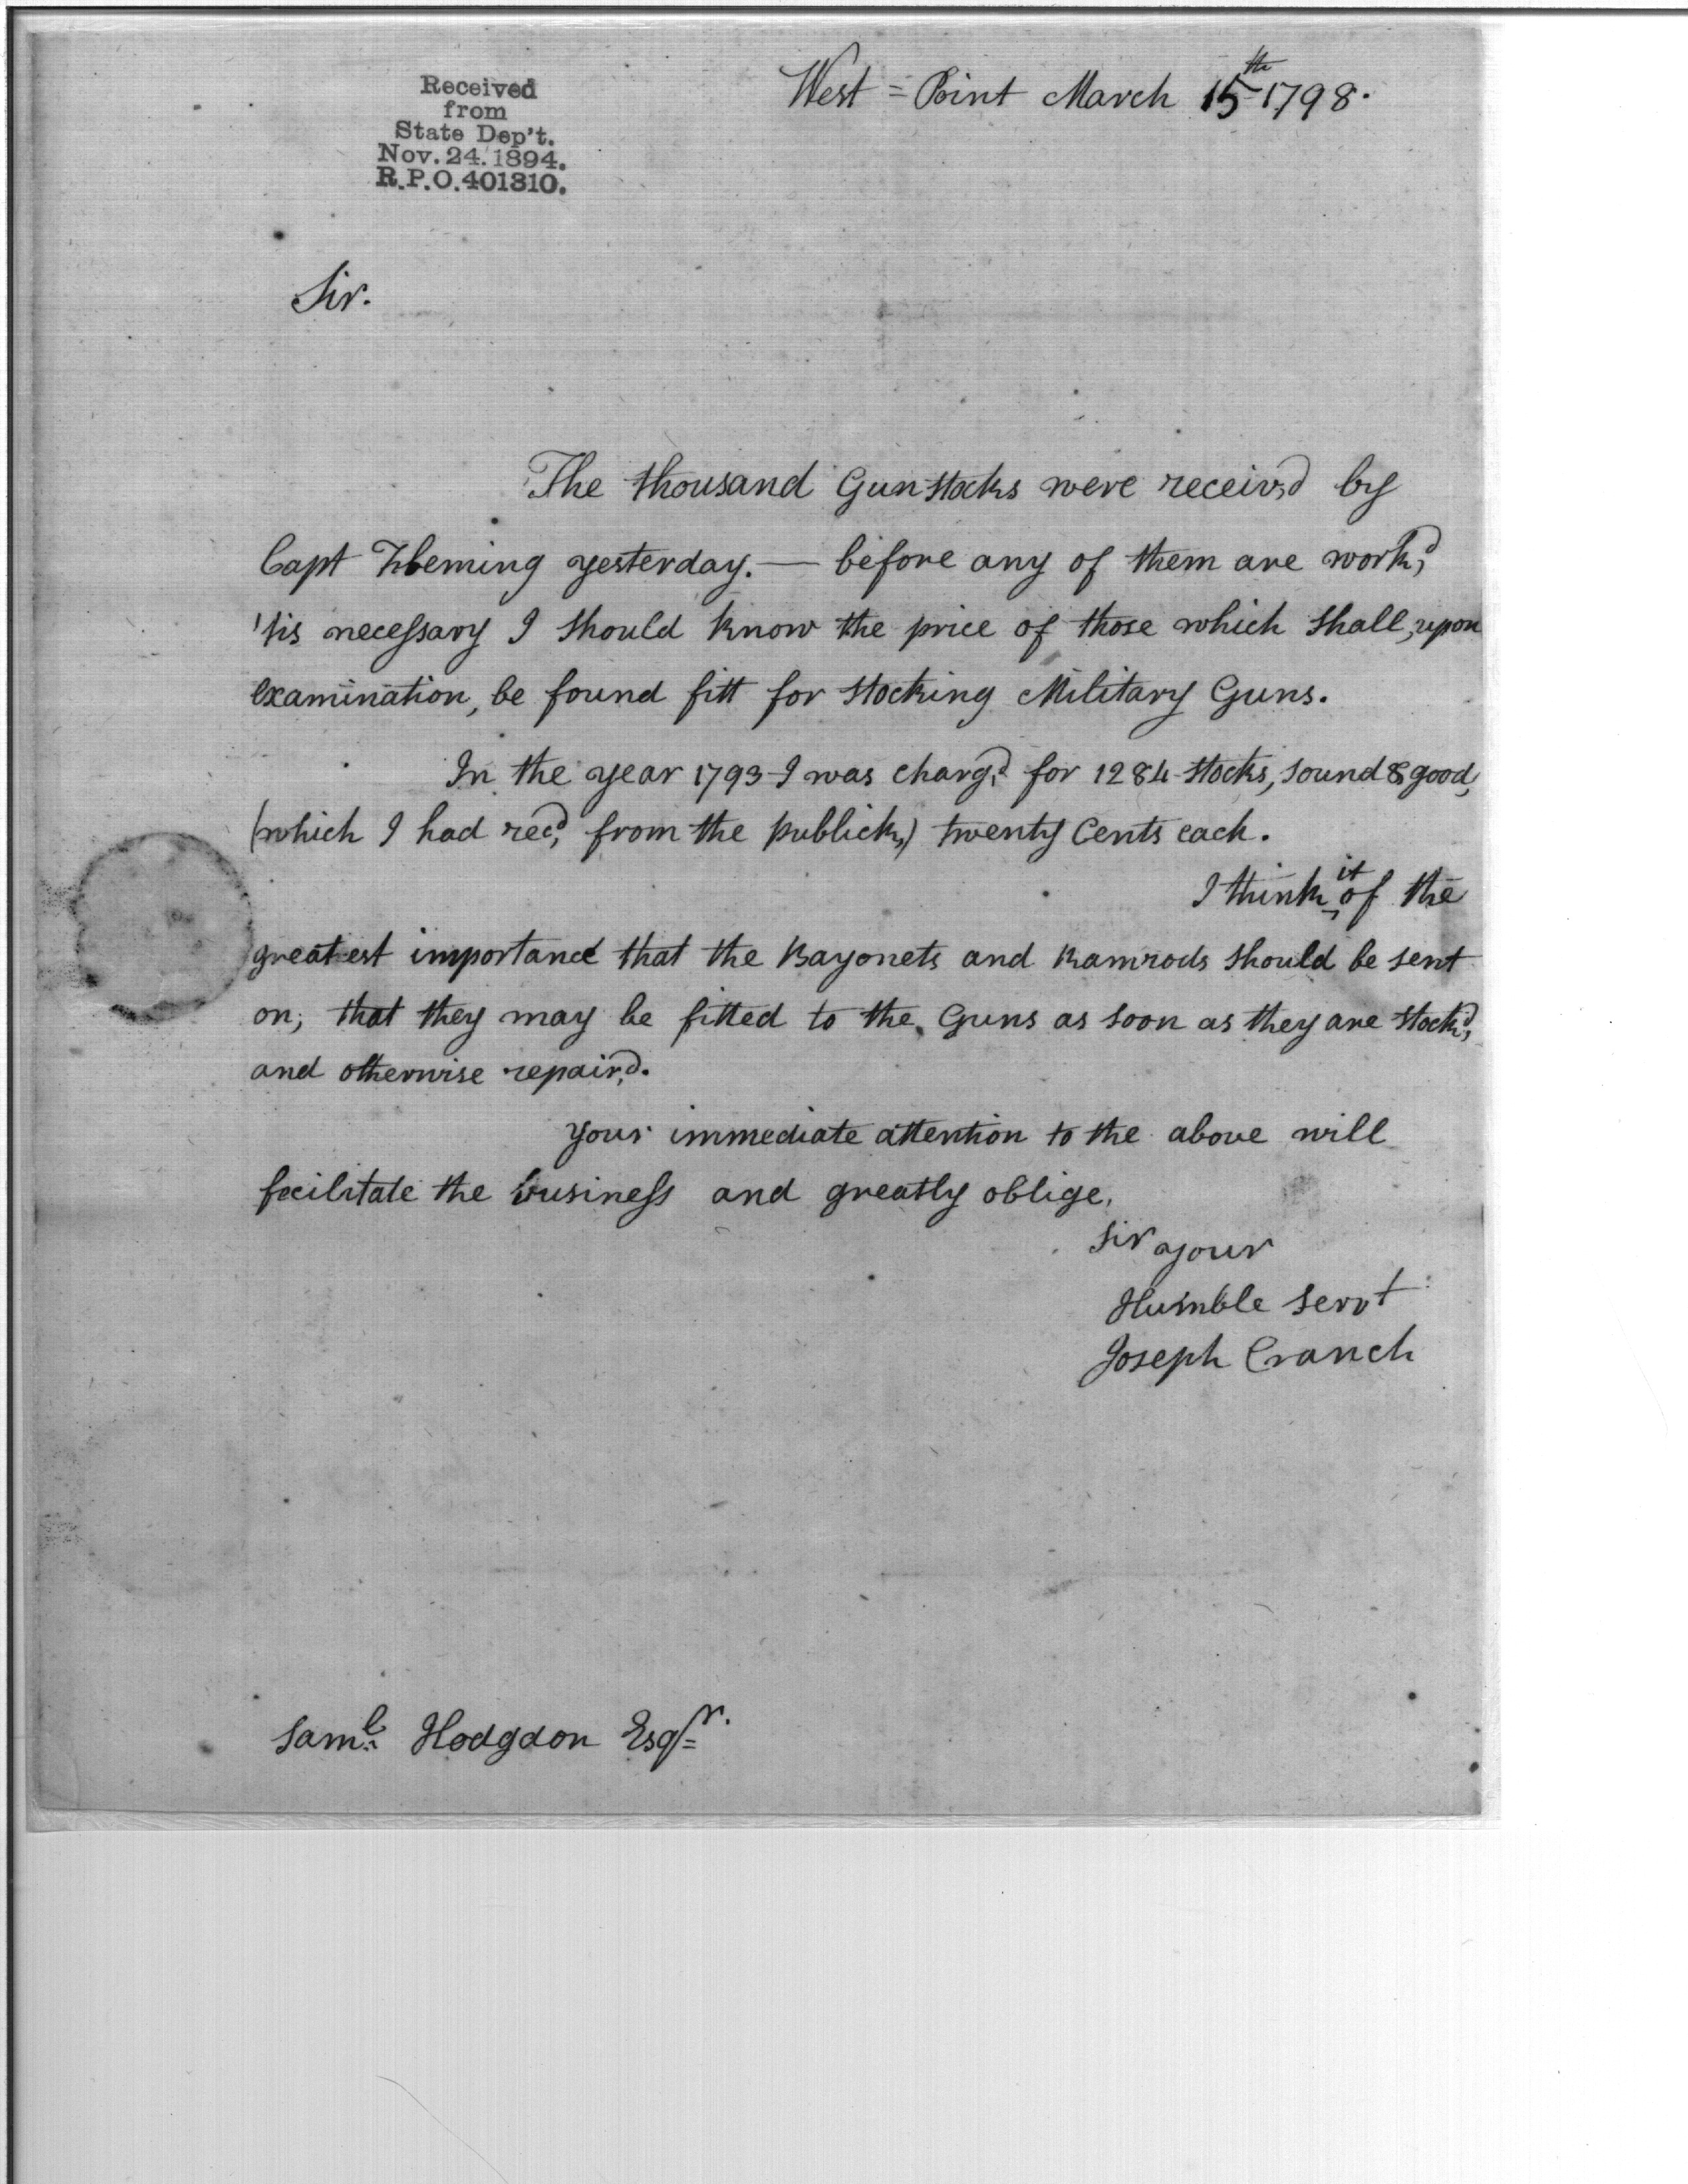 Received
from
State Dep't.
Nov. 24. 1894.
R.P.O. 401310.
West=Point March 15th 1798.
Sir.
The thousand Gunstocks were receiv'd by
Capt Fleming yesterday.— before any of them are work'd,
'tis necessary I should know the price of those which shall, upon
examination, be found fitt for stocking Military Guns.
In the year 1793 I was charg'd for 1284 stocks, sound & good,
(which I had rec'd, from the publick,) twenty Cents each.
I think it of the
greatest importance that the Bayonets and Ramrods should be sent
on; that they may be fitted to the Guns as soon as they are stock'd,
and otherwise repair'd.
Your immediate attention to the above will
facilitate the business and greatly oblige,
Sir your
Humble Servt
Joseph Cranch
Saml. Hodgdon Esqr.